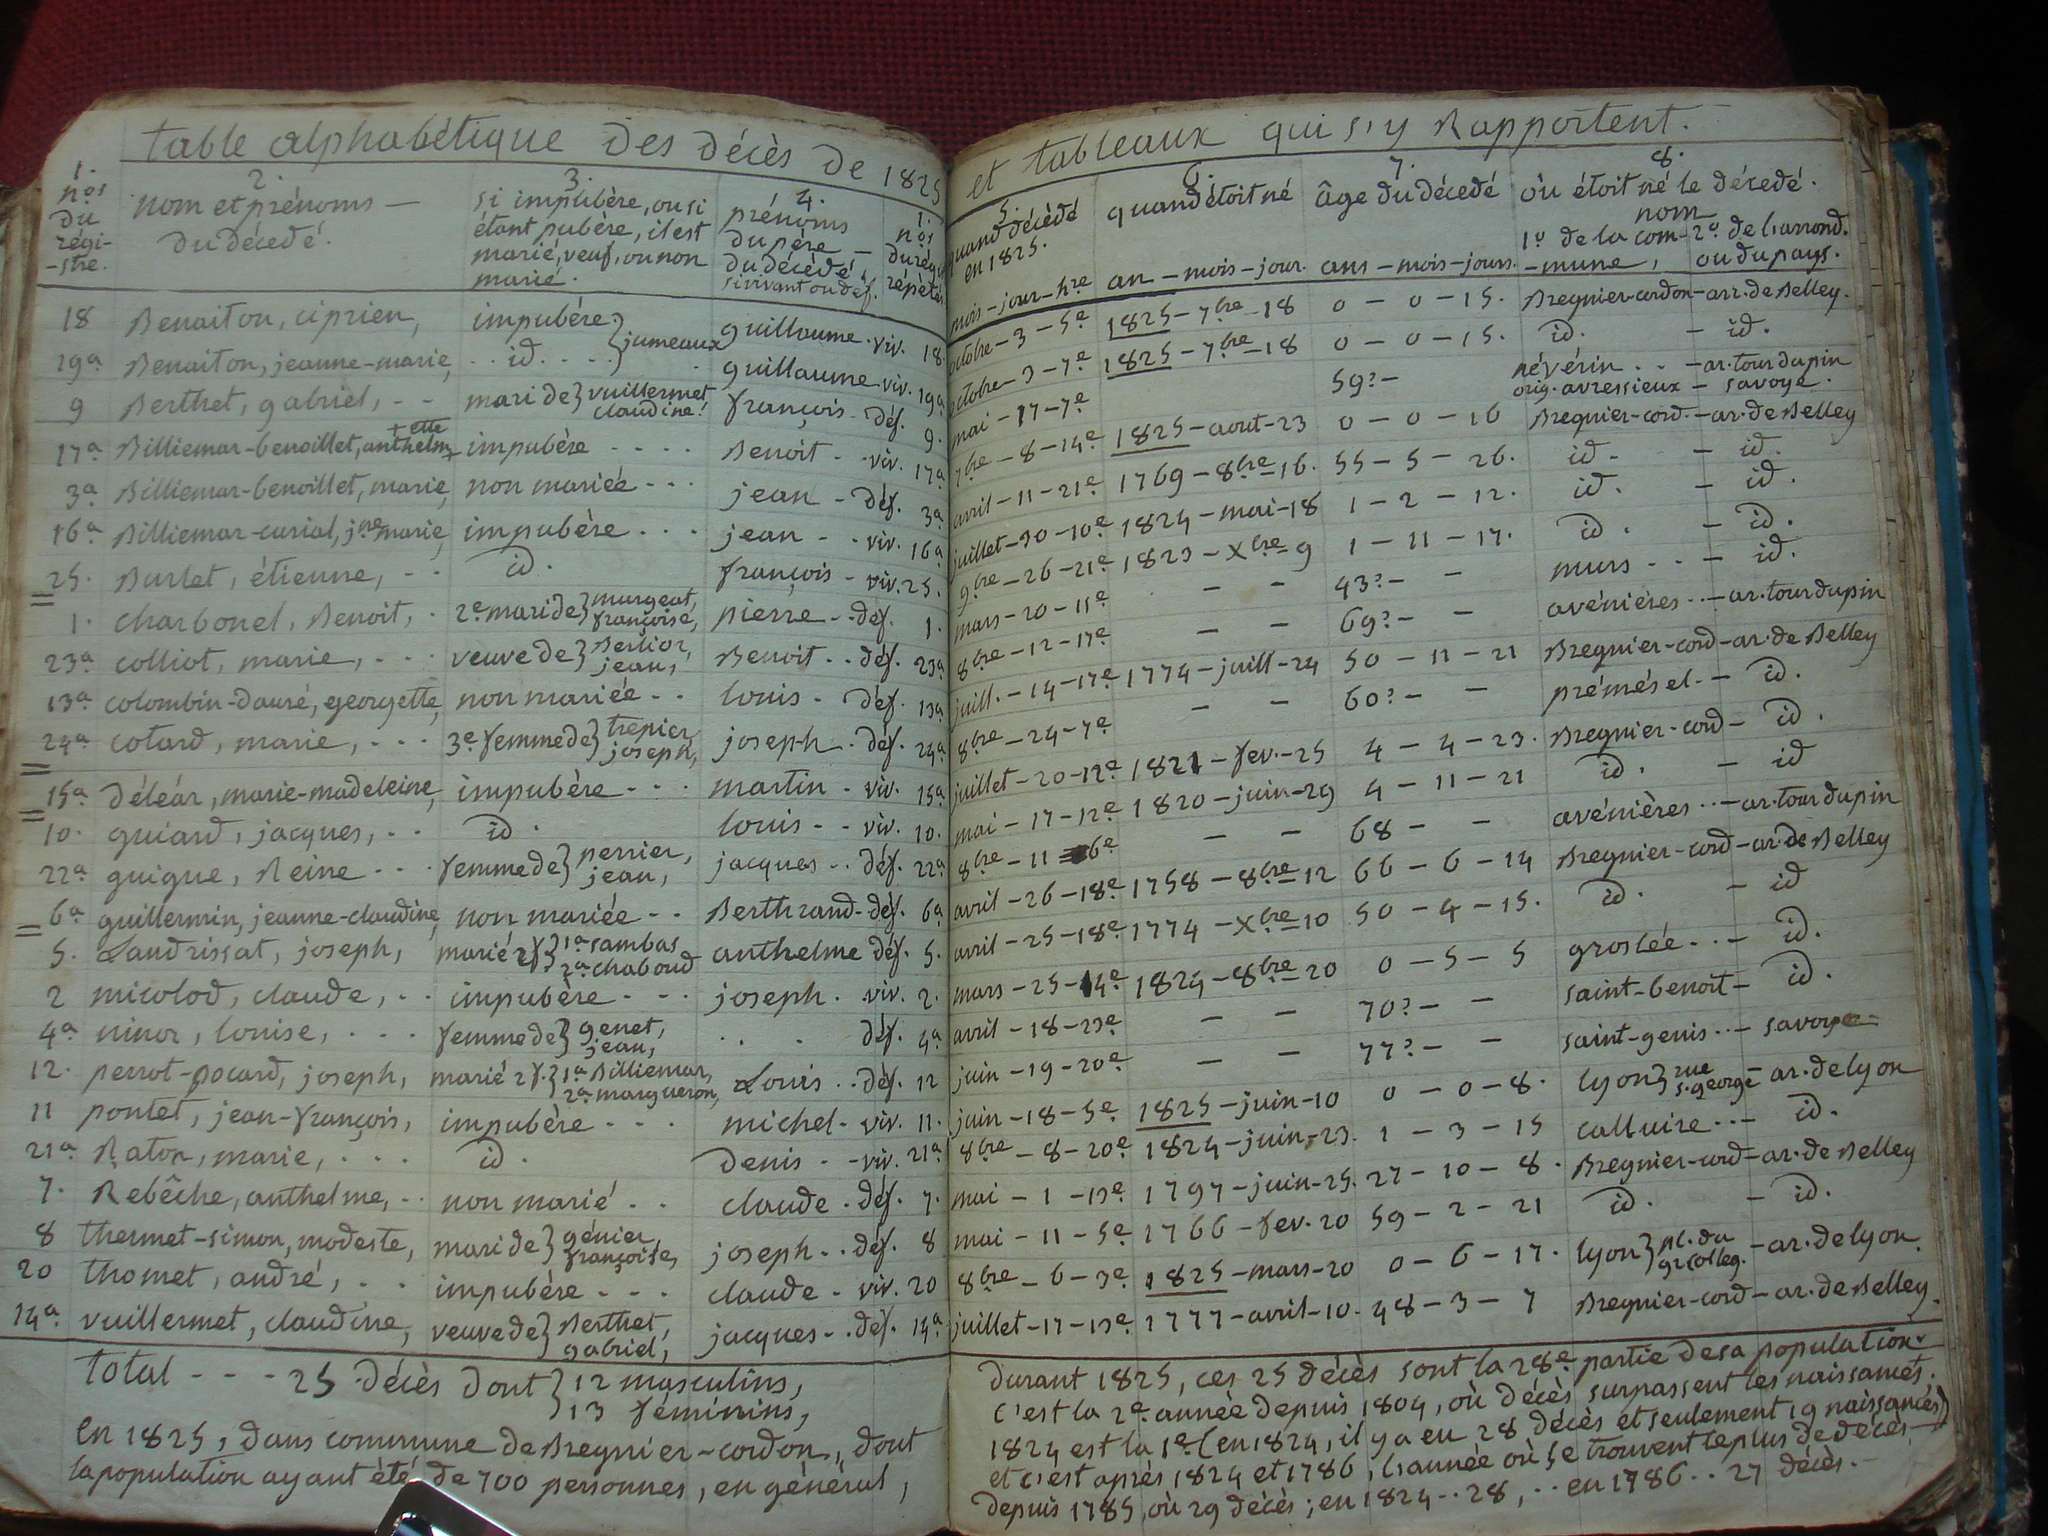 table alphabétique des décès de 1825
1. nos du régi-stre.
2. nom et prénoms du décedé.
3. si impubère, ou si étant pubère, il est marié, veuf, ou non marié.
4. prénoms du père du décédé, survivant ou déf.
1. nos du régi répétés
18 Benaiton, ciprien, impubère } jumeaux guillaume . viv. 18.
19a Benaiton, jeanne-marie, . . id. . . . guillaume . viv. 19a
9 Berthet, gabriel, - - mari de } vuillermet, claudine. françois - déf. 9.
17a Billiemar-benoillet, anthelm+ +ette impubère . . . . Benoit - - viv. 17a
3a Billiemar-benoillet, marie, non mariée - - - jean - déf. 3a
16a Billiemar-curial, jne marie, impubère . . . jean - - viv. 16a
25. Burlet, étienne, - - id. françois - viv. 25.
1. charbonel, Benoit, . 2e mari de } murgeat, françoise, pierre - - déf. 1.
23a colliot, marie, . . . veuve de } Berlior, jean, Benoit . . déf. 23a
13a colombin-dauré, georgette, non mariée - - louis - déf. 13a
24a cotard, marie, . . . 3e femme de } trepier, joseph, joseph . déf. 24a
15a déléar, marie-madeleine, impubère - - - martin - viv. 15a
10. guiard, jacques, . . id. louis - - viv. 10.
22a guigue, Reine . . . femme de } perrier, jean, jacques . . déf. 22a
6a guillermin, jeanne-claudine, non mariée - - Berthrand - déf. 6a
5. Landrissat, joseph, marié 2f. } 1a sambas 2a chaboud anthelme déf. 5.
2 micolod, claude, . . impubère - - - joseph . viv. 2.
4a ninor, louise, . . . femme de } genet, jean, . . . déf. 4a
12. perrot-pocard, joseph, marié 2f. } 1a Billiemar, 2a margueron, Louis . . déf. 12
11 pontet, jean-françois, impubère - - - michel - viv. 11.
21a Raton, marie, . . . id. denis - - viv. 21a
7. Rebêche, anthelme, . . non marié . . claude . déf. 7.
8 thermet-simon, modeste, mari de } génier, françoise, joseph . . déf. 8
20 thomet, andré, . . impubère - - - claude - viv. 20
14a vuillermet, claudine, veuve de } Berthet, gabriel, jacques - . déf. 14a
total - - - 25 décès dont } 12 masculins, 13 féminins,
en 1825, dans commune de Bregnier-cordon, dont
la population ayant été de 700 personnes, en général,
et tableaux qui s'y Rapportent.
5. quand décédé en 1825. mois - jour - hre
6. quand étoit né an - mois - jour.
7. âge du décedé ans - mois - jours.
8. où étoit né le décedé. nom 1º de la com-mune, 2º de l'arrond. ou du pays.
octobre - 3 - 5e 1825 - 7bre - 18 0 - 0 - 15. Bregnier-cordon - arr. de Belley.
octobre - 3 - 7e 1825 - 7bre - 18 0 - 0 - 15. id. - id.
mai - 17 - 7e 59? - névérin . . - ar. tour du pin orig. avressieux - savoye.
7bre - 8 - 14e 1825 - aout - 23 0 - 0 - 16 Bregnier-cord. - ar. de Belley
avril - 11 - 21e 1769 - 8bre - 16. 55 - 5 - 26. id. - id.
juillet - 30 - 10e 1824 - mai - 18 1 - 2 - 12. id. - id.
9bre - 26 - 21e 1823 - Xbre - 9 1 - 11 - 17. id. - id.
mars - 20 - 11e - - 43? - - murs . . - id.
8bre - 12 - 17e - - 69? - - avénières . . - ar. tour du pin
juill. - 14 - 17e 1774 - juill - 24 50 - 11 - 21 Bregnier-cord - ar. de Belley
8bre - 24 - 7e - - 60? - - prémésel - - id.
juillet - 20 - 12e 1821 - fev. - 25 4 - 4 - 23. Bregnier-cord - id.
mai - 17 - 12e 1820 - juin - 29 4 - 11 - 21 id. - id
8bre - 11 - 6e - - 68 - - avénières . . - ar. tour du pin
avril - 26 - 18e 1758 - 8bre - 12 66 - 6 - 14 Bregnier-cord - ar. de Belley
avril - 25 - 18e 1774 - Xbre - 10 50 - 4 - 15. id. - id
mars - 25 - 14e 1824 - 8bre - 20 0 - 5 - 5 groslée . . - id.
avril - 18 - 23e - - 70? - - saint-benoit - id.
juin - 19 - 20e - - 77? - - saint-genis . . - savoye
juin - 18 - 5e 1825 - juin - 10 0 - 0 - 8. lyon } rue s. george - ar. de lyon
8bre - 8 - 20e 1824 - juin - 23. 1 - 3 - 15 calluire . . - id.
mai - 1 - 13e 1797 - juin - 25. 27 - 10 - 8. Bregnier-cord - ar. de Belley
mai - 11 - 5e 1766 - fev. 20 59 - 2 - 21 id. - id.
8bre - 6 - 3e 1825 - mars - 20 0 - 6 - 17. lyon } pl. du gr colleg. - ar. de lyon
juillet - 17 - 13e 1777 - avril - 10 - 48 - 3 - 7 Bregnier-cord - ar. de Belley.
durant 1825, ces 25 décès sont la 28e partie de sa population.
c'est la 2e année depuis 1804, où décès surpassent les naissances.
1824 est la 1e (en 1824, il y a eu 28 décès et seulement 19 naissances)
et c'est après 1824 et 1786, l'année où se trouvent le plus de décès,
depuis 1785, où 29 décès ; en 1824 . . 28, . . en 1786 . . 27 décès. -